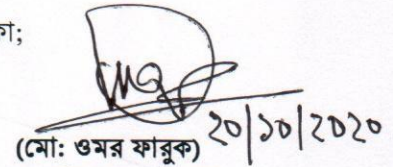 কা;
(মো: ওমর ফারুক) ২০/১০/২০২০